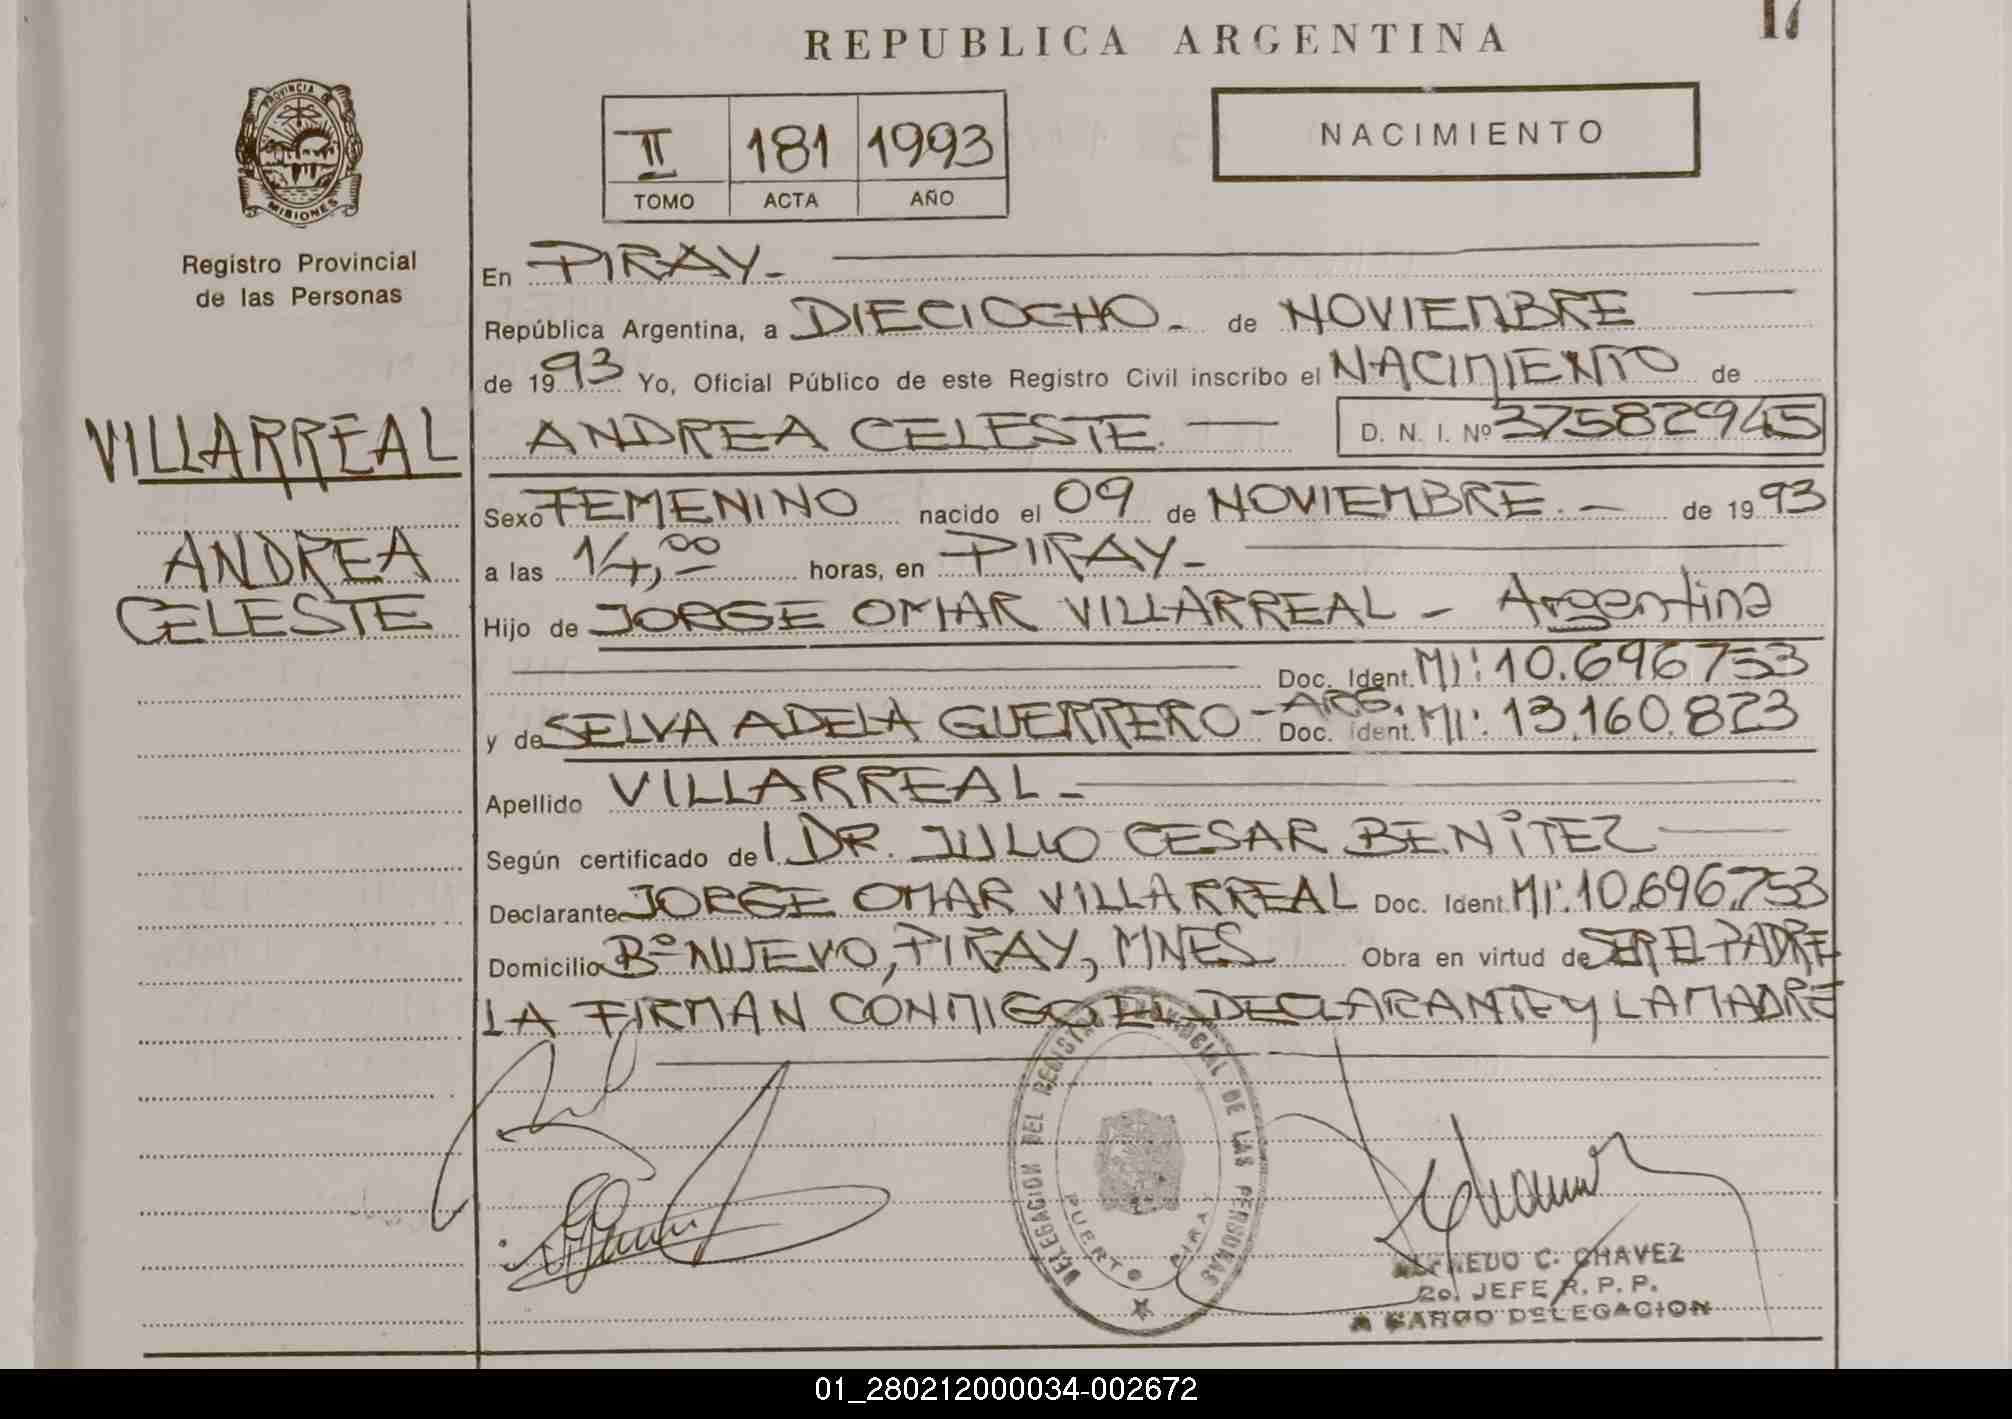 17
REPUBLICA ARGENTINA
PROVINCIA DE
MISIONES
Registro Provincial
de las Personas
II 181 1993
TOMO ACTA AÑO
NACIMIENTO
En PIRAY-
República Argentina, a DIECIOCHO- de NOVIEMBRE
de 1993 Yo, Oficial Público de este Registro Civil inscribo el NACIMIENTO de
VILLARREAL
ANDREA CELESTE. D. N. I. Nº 37582945
Sexo FEMENINO nacido el 09 de NOVIEMBRE.- de 1993
ANDREA
a las 14,00 horas, en PIRAY-
CELESTE
Hijo de JORGE OMAR VILLARREAL - Argentina
Doc. Ident. MI: 10.696753
y de SELVA ADELA GUERRERO - ARG. Doc. Ident. MI: 13.160.823
Apellido VILLARREAL-
Según certificado del DR. JULIO CESAR BENITEZ
Declarante JORGE OMAR VILLARREAL Doc. Ident. MI: 10.696.753
Domicilio Bº NUEVO, PIRAY, MNES Obra en virtud de SER EL PADRE
LA FIRMAN CONMIGO EL DECLARANTE Y LA MADRE
DELEGACION DEL REGISTRO PROVINCIAL DE LAS PERSONAS
PUERTO PIRAY
ALFREDO C. CHAVEZ
2o. JEFE R. P. P.
A CARGO DELEGACION
01_280212000034-002672